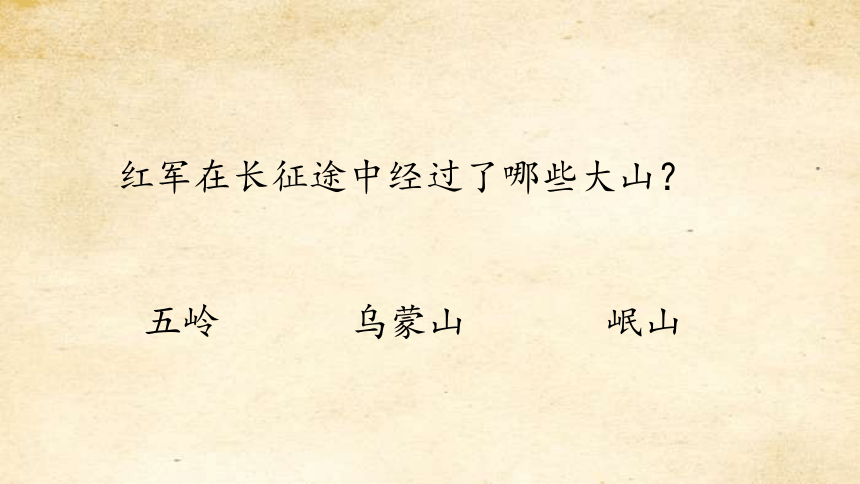 红军在长征途中经过了哪些大山？
五岭 乌蒙山 岷山